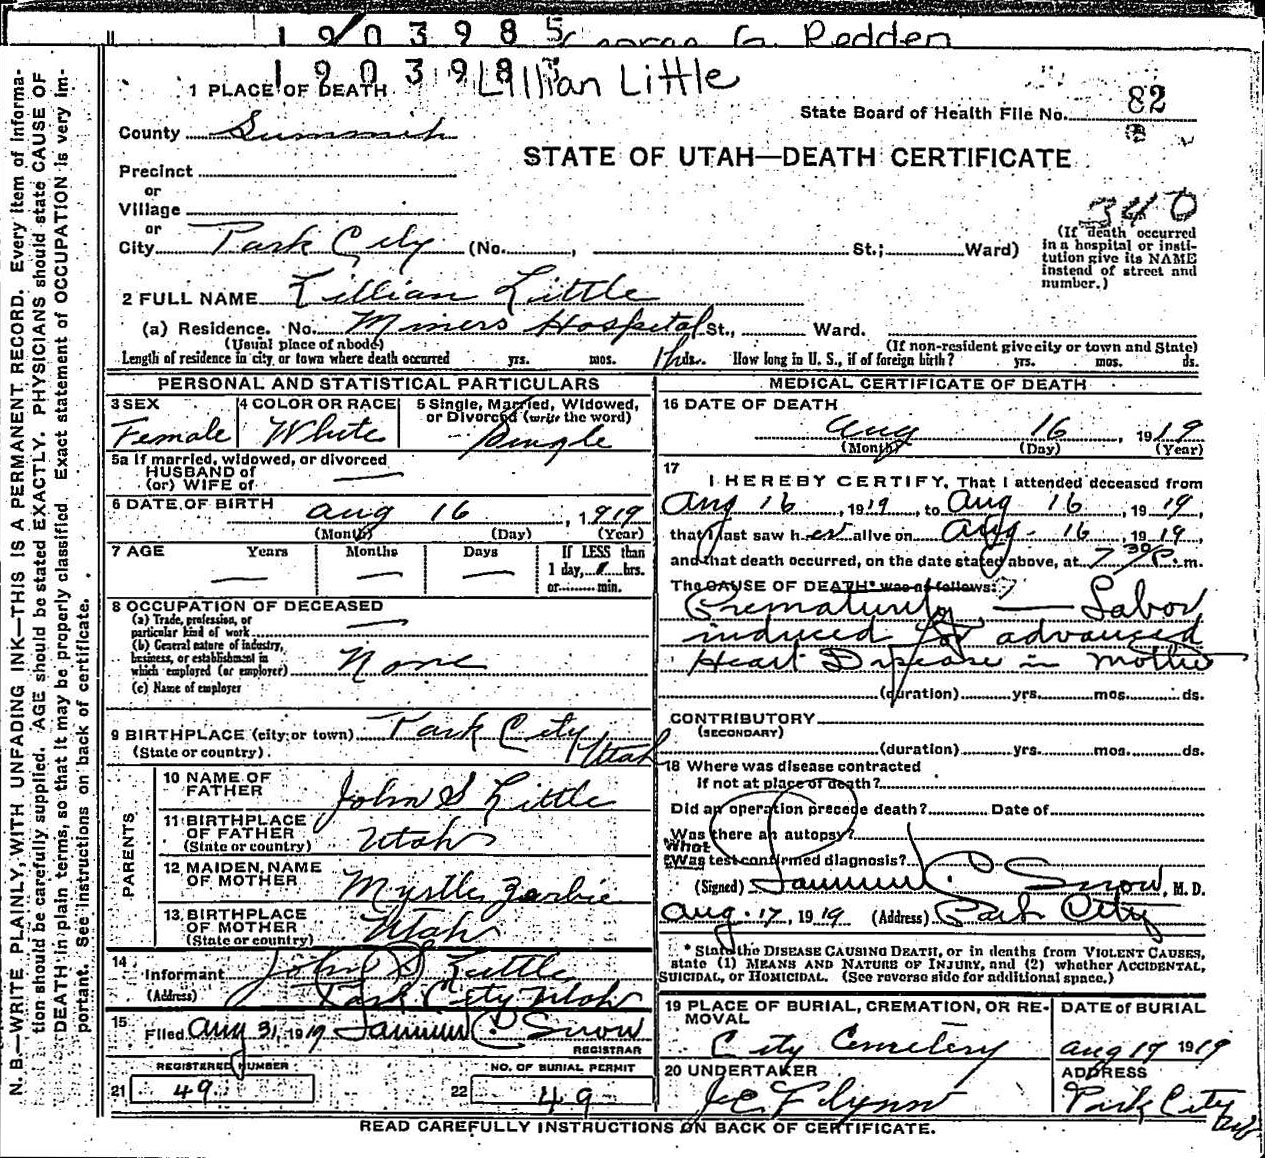 1903985 George G. Redden
1903983 Lillian Little
1 PLACE OF DEATH
State Board of Health File No. 82
County Summit
STATE OF UTAH—DEATH CERTIFICATE
Precinct
or
Village
340
or
City Park City (No. , St.; Ward)
(If death occurred in a hospital or institution give its NAME instead of street and number.)
2 FULL NAME Lillian Little
(a) Residence. No. Miners Hospital St., Ward.
(Usual place of abode)
(If non-resident give city or town and State)
Length of residence in city or town where death occurred yrs. mos. 1 h ds. How long in U. S., if of foreign birth? yrs. mos. ds.
PERSONAL AND STATISTICAL PARTICULARS
3 SEX
Female
4 COLOR OR RACE
White
5 Single, Married, Widowed, or Divorced (write the word)
Single
5a If married, widowed, or divorced
HUSBAND of
(or) WIFE of —
6 DATE OF BIRTH Aug 16, 1919
(Month) (Day) (Year)
7 AGE Years Months Days If LESS than
— — — 1 day, 1 hrs.
or min.
8 OCCUPATION OF DECEASED
(a) Trade, profession, or
particular kind of work —
(b) General nature of industry,
business, or establishment in
which employed (or employer) None
(c) Name of employer
9 BIRTHPLACE (city or town) Park City
(State or country) Utah
PARENTS
10 NAME OF
FATHER John S Little
11 BIRTHPLACE
OF FATHER
(State or country) Utah
12 MAIDEN NAME
OF MOTHER Myrtle Zerbie
13 BIRTHPLACE
OF MOTHER
(State or country) Utah
14
Informant John S Little
(Address) Park City Utah
15
Filed Aug 31, 1919 C. Snow
REGISTRAR
REGISTERED NUMBER
21 49
NO. OF BURIAL PERMIT
22 49
MEDICAL CERTIFICATE OF DEATH
16 DATE OF DEATH
Aug 16, 1919
(Month) (Day) (Year)
17
I HEREBY CERTIFY, That I attended deceased from
Aug 16, 1919, to Aug 16, 1919,
that I last saw her alive on Aug. 16, 1919,
and that death occurred, on the date stated above, at 7 30 P. m.
The CAUSE OF DEATH* was as follows:
Prematurity — Labor
induced for advanced
Heart Disease in mother
(duration) yrs. mos. ds.
CONTRIBUTORY
(SECONDARY)
(duration) yrs. mos. ds.
18 Where was disease contracted
if not at place of death?
Did an operation precede death? Date of
Was there an autopsy?
What
Was test confirmed diagnosis?
(Signed) C. Snow, M. D.
Aug. 17, 1919 (Address) Park City
* State the DISEASE CAUSING DEATH, or in deaths from VIOLENT CAUSES,
state (1) MEANS AND NATURE OF INJURY, and (2) whether ACCIDENTAL,
SUICIDAL, or HOMICIDAL. (See reverse side for additional space.)
19 PLACE OF BURIAL, CREMATION, OR REMOVAL
City Cemetery
DATE OF BURIAL
Aug 17 1919
20 UNDERTAKER
J E Flynn
ADDRESS
Park City
READ CAREFULLY INSTRUCTIONS ON BACK OF CERTIFICATE.
N. B.—WRITE PLAINLY, WITH UNFADING INK—THIS IS A PERMANENT RECORD. Every item of informa-
tion should be carefully supplied. AGE should be stated EXACTLY. PHYSICIANS should state CAUSE OF
DEATH in plain terms, so that it may be properly classified. Exact statement of OCCUPATION is very im-
portant. See instructions on back of certificate.